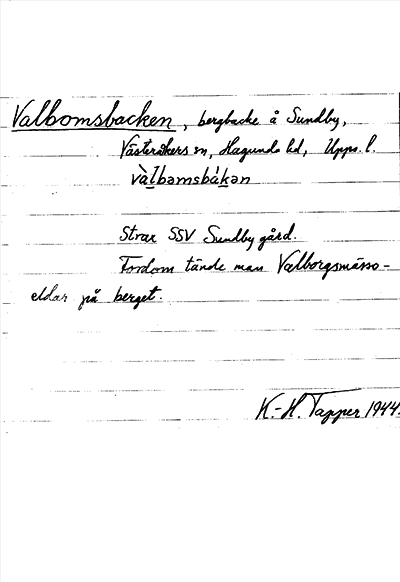 Valbomsbacken, bergbacke å Sundby,
Västeråkers sn, Hagunda hd, Upps. l.
và̱lbəmsbáḵən
Strax SSV Sundby gård.
Fordom tände man Valborgsmässo-
eldar på berget.
K.-H. Tapper 1944.